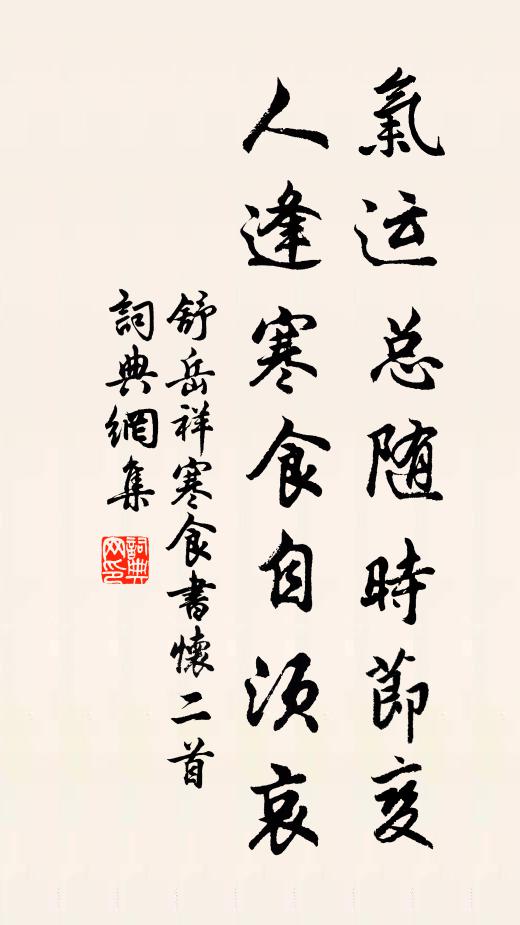 氣运总随時莭变
人逢寒食自须哀
舒岳祥寒食書懷二首
詞典網集
詞典网印